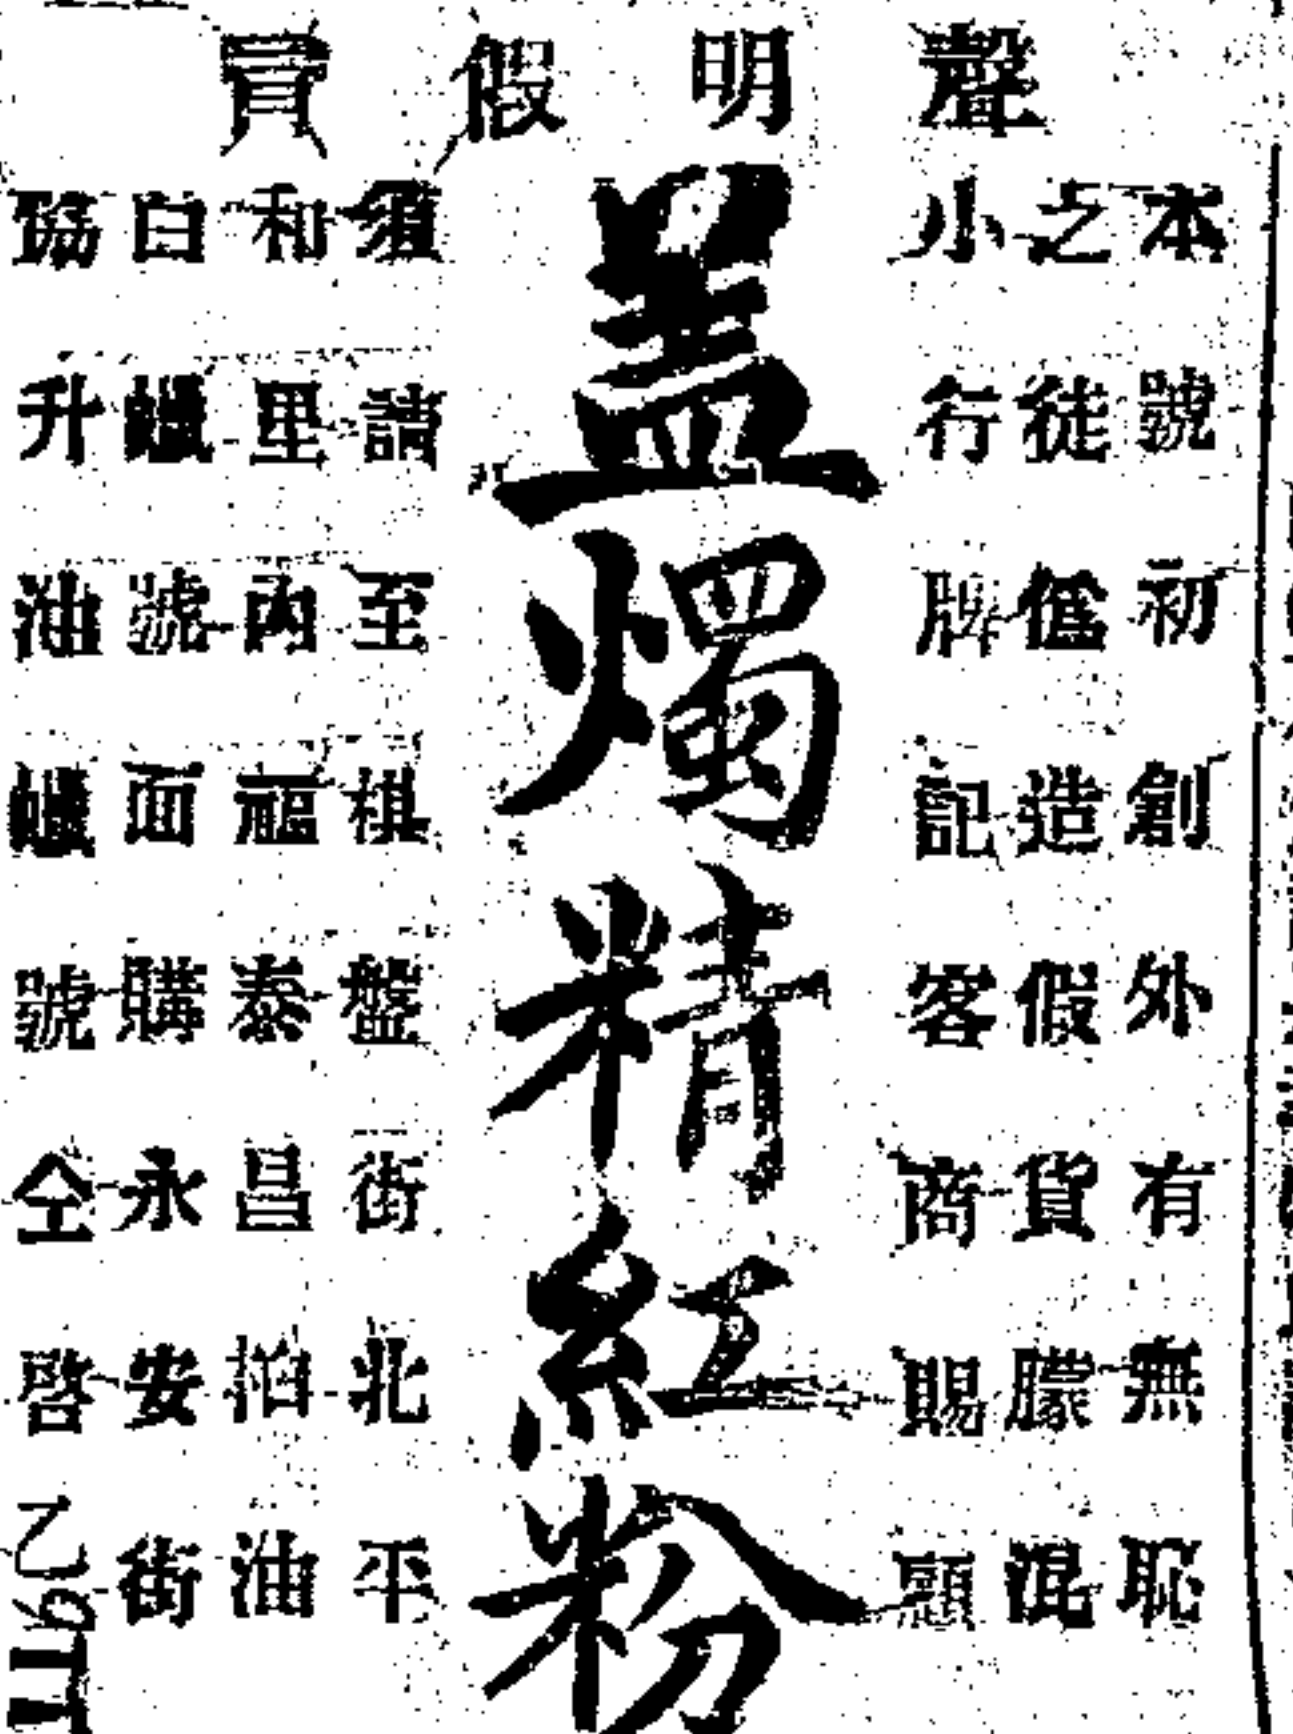 聲明假冒
本號初創外有無恥
之徒僞造假貨朦混
小行牌記客商賜顧
盖燭精紅粉
須請至棋盤街北平
和里內福泰昌拍油
白蠟號面購永安街
協升油蠟號仝啓